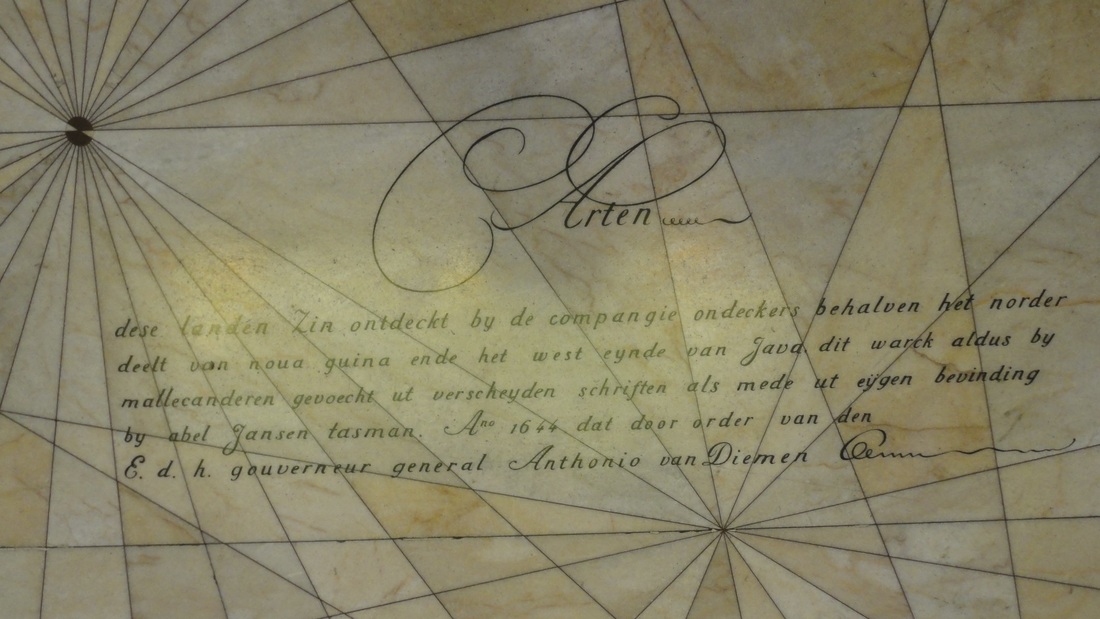 Carten
dese landen Zin ontdeckt by de compangie ondeckers behalven het norder
deelt van noua guina ende het west eynde van Java dit warck aldus by
mallecanderen gevoecht ut verscheyden schriften als mede ut eÿgen bevinding
by abel Jansen tasman. Aⁿᵒ 1644 dat door order van den
E. d. h. gouverneur general Anthonio van Diemen